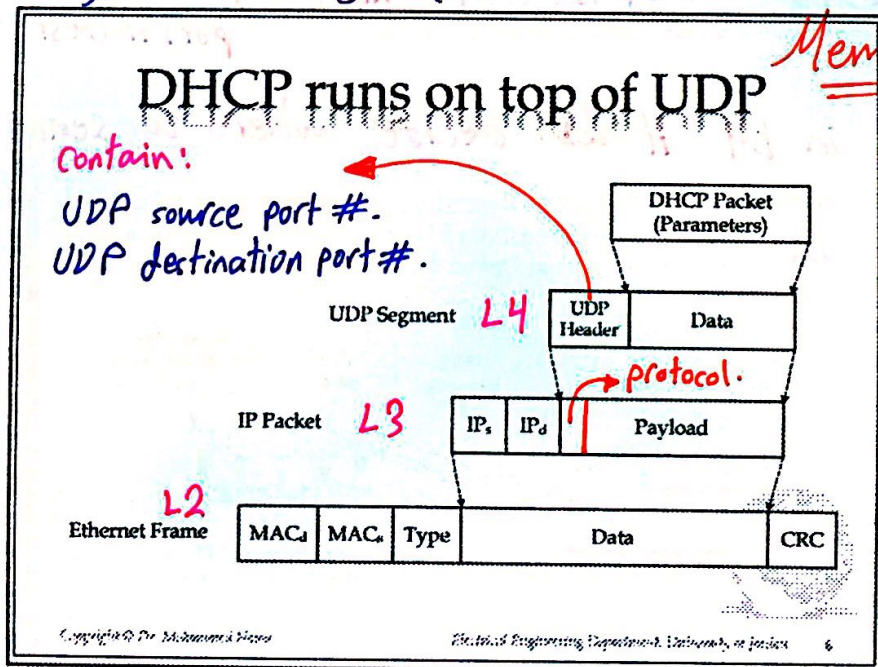 Mem
DHCP runs on top of UDP
Contain:
UDP source port #.
UDP destination port #.
DHCP Packet
(Parameters)
UDP Segment L4 UDP Header Data
protocol.
IP Packet L3 IPs IPd Payload
L2
Ethernet Frame MACd MACs Type Data CRC
Copyright © Dr. Mohammed Electrical Engineering Department, University of Jordan 6